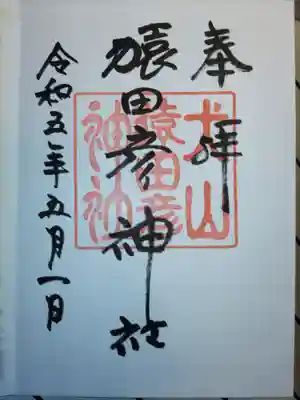 奉拝
犬山
猿田彦
神社
猿田彦神社
令和五年五月一日